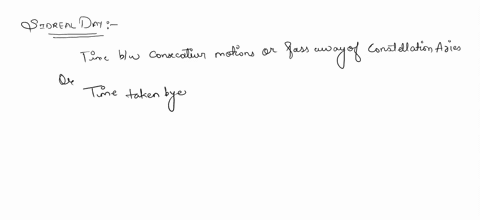 SIDREAL DAY:-
Time b/w Consecutive motions or Pass away of Constellation Aries
Or
Time taken bye